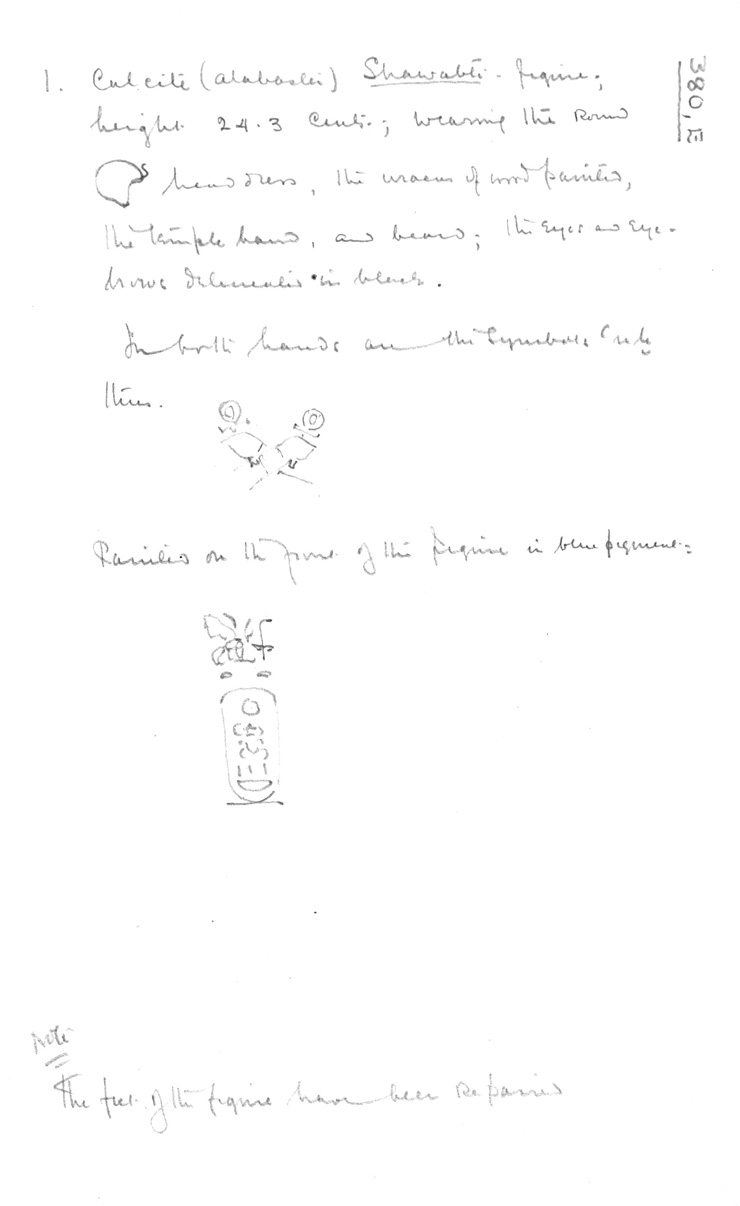 380,E
1. Calcite (alabaster) Shawabti-figure;
height 24.3 Cents.; wearing the Round
headdress, the uraeus of wood painted,
the temple band, and beard; the Eyes and Eye-
brows delineated in black.
In both hands are the Symbols
thus.
Painted on the front of the figure in blue pigment:
Note
The feet of the figure have been Repaired